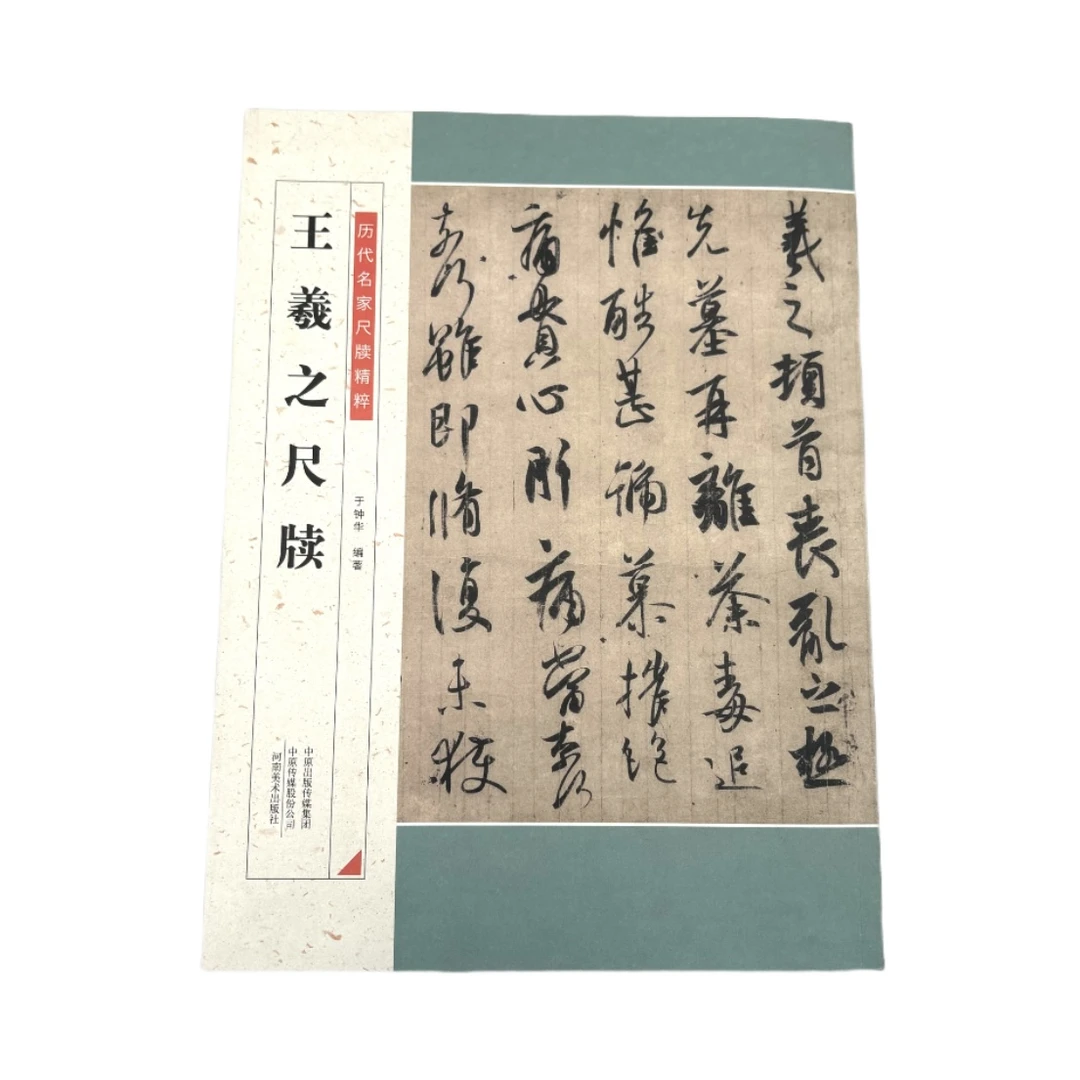 历代名家尺牍精粹
王羲之尺牍
于钟华 编著
中原出版传媒集团
中原传媒股份公司
河南美术出版社
羲之頓首喪亂之極
先墓再離荼毒追
惟酷甚號慕摧絕
痛貫心肝痛當奈何
奈何雖即脩復未獲